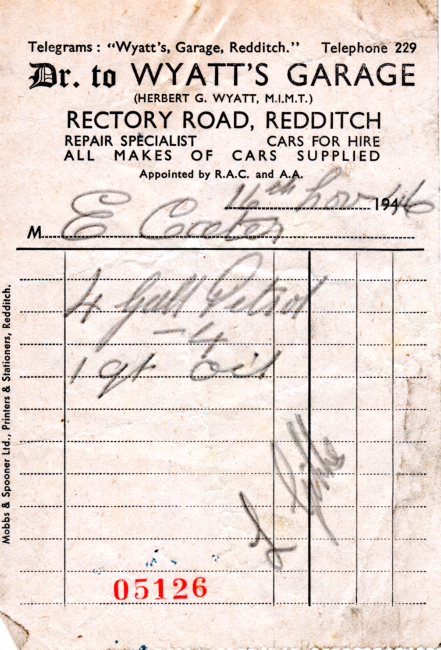 Telegrams: "Wyatt's, Garage, Redditch." Telephone 229
Dr. to WYATT'S GARAGE
(HERBERT G. WYATT, M.I.M.T.)
RECTORY ROAD, REDDITCH
REPAIR SPECIALIST CARS FOR HIRE
ALL MAKES OF CARS SUPPLIED
Appointed by R.A.C. and A.A.
4th Nov 1946
M E
4 Gall Petrol
— 4
1 qt Oil
05126
Mobbs & Spooner Ltd., Printers & Stationers, Redditch.